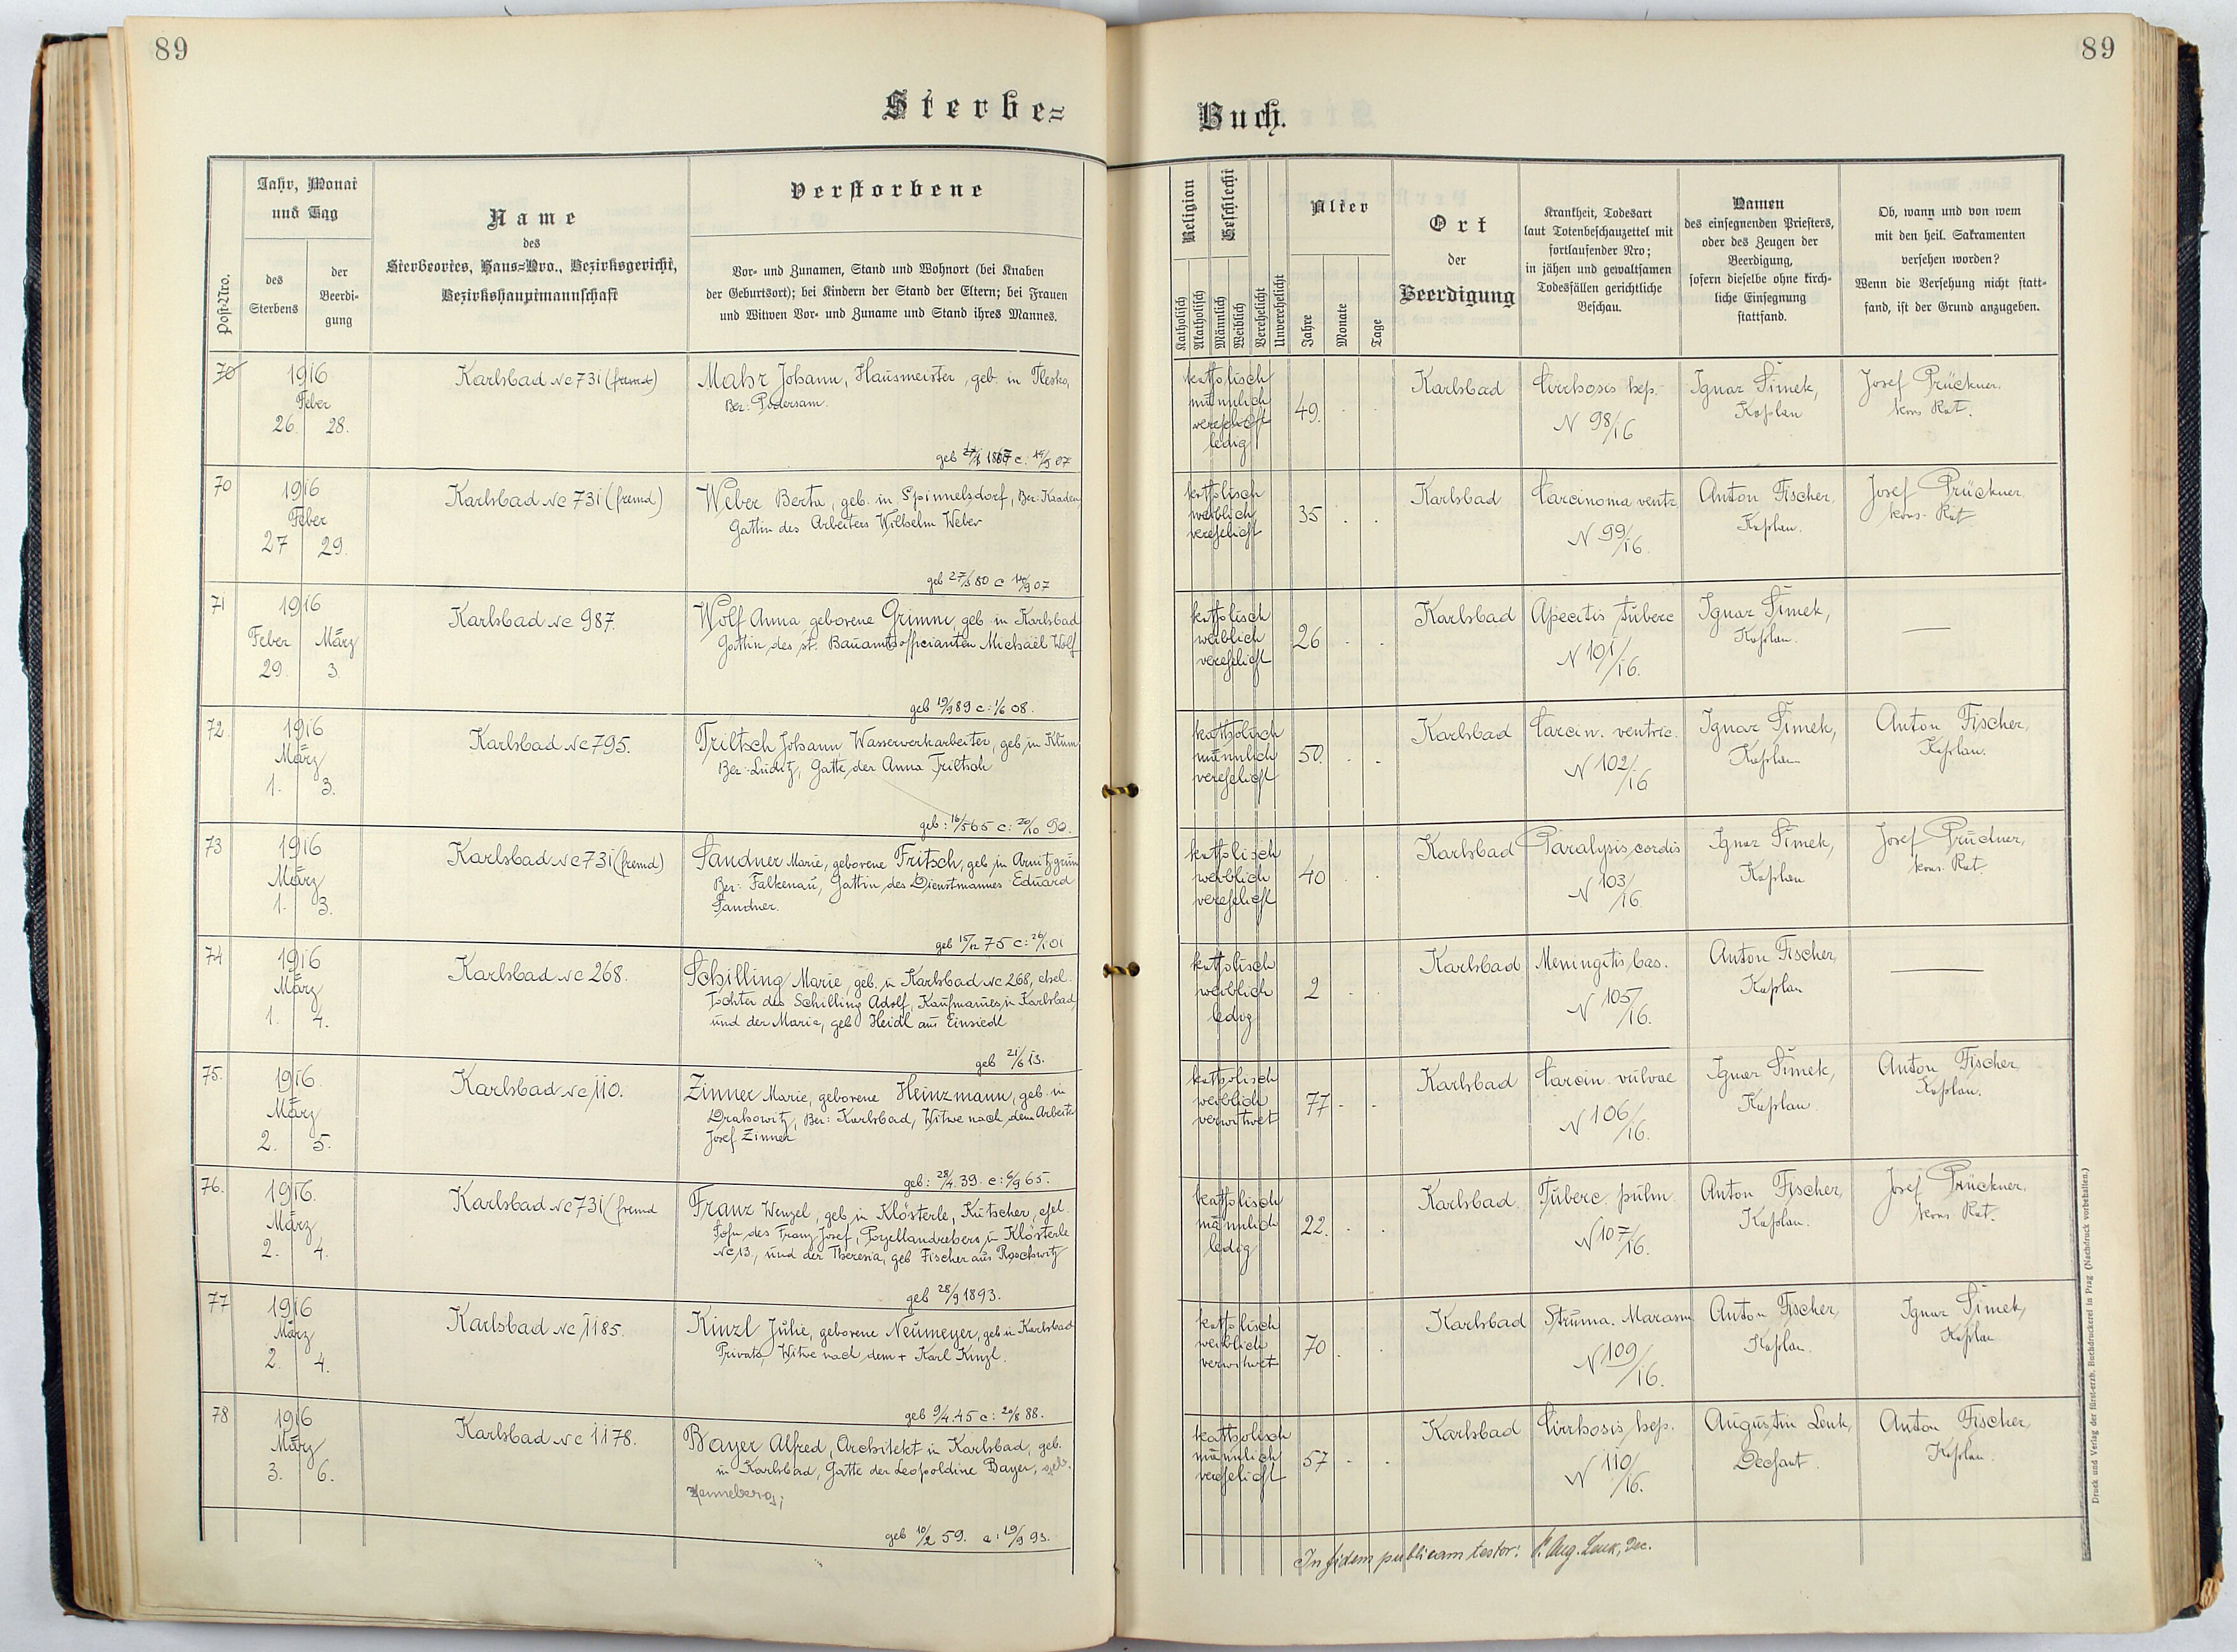 89
89
Sterbe=
Buch.
Jahr, Monat
und Tag
Verstorbene
Name
des
Sterbeortes, Haus=Nro., Bezirksgericht,
Bezirkshauptmannschaft
Post=Nro.
des
Sterbens
der
Beerdi=
gung
Vor= und Zunamen, Stand und Wohnort (bei Knaben
der Geburtsort); bei Kindern der Stand der Eltern; bei Frauen
und Witwen Vor= und Zuname und Stand ihres Mannes.
Religion
Geschlecht
Katholisch
Akatholisch
Männlich
Weiblich
Verehelicht
Unverehelicht
Alter
Jahre
Monate
Tage
Ort
der
Beerdigung
Krankheit, Todesart
laut Totenbeschauzettel mit
fortlaufender Nro;
in jähen und gewaltsamen
Todesfällen gerichtliche
Beschau.
Namen
des einsegnenden Priesters,
oder des Zeugen der
Beerdigung,
sofern dieselbe ohne kirch=
liche Einsegnung
stattfand.
Ob, wann und von wem
mit den heil. Sakramenten
versehen worden?
Wenn die Versehung nicht statt=
fand, ist der Grund anzugeben.
70
1916
Feber
26. 28.
Karlsbad Nc 731 (fremd)
Mahr Johann, Hausmeister, geb. in Flesko,
Bez: Podersam.
geb 1867 c: 07
katholisch
männlich
verehelicht
ledig
49.
Karlsbad
Cirrhosis hep.
N 98/16
Ignaz Šimek,
Kaplan
Josef Prückner.
kons Rat.
70
1916
Feber
27 29.
Karlsbad Nc 731 (fremd)
Weber Berta, geb. in Spinnelsdorf, Bez: Kaaden
Gattin des Arbeiters Wilhelm Weber
geb 27/3 80 c 14/9 07
katholisch
weiblich
verehelicht
35
Karlsbad
Carcinoma ventr.
N 99/16.
Anton Fischer,
Kaplan.
Josef Prückner
kons. Rat
71
1916
Feber März
29. 3.
Karlsbad Nc 987.
Wolf Anna geborene Grimm, geb. in Karlsbad
Gattin des st. Bauamtsofficianten Michael Wolf
geb 19/9 89 c: 1/6 08.
katholisch
weiblich
verehelicht
26
Karlsbad
Apecitis tuberc
N 101/16.
Ignaz Šimek,
Kaplan.
—
72.
1916
März
1. 3.
Karlsbad Nc 795.
Triltsch Johann Wasserwerkarbeiter, geb in Klum
Bez: Luditz, Gatte der Anna Triltsch
geb: 16/5 65 c: 20/10 90.
katholisch
männlich
verehelicht
50.
Karlsbad
Carcin. ventric.
N 102/16
Ignaz Šimek,
Kaplan
Anton Fischer,
Kaplan.
73
1916
März
1. 3.
Karlsbad Nc 731 (fremd)
Sandner Marie, geborene Fritsch, geb, in Arnitzgrün
Bez: Falkenau, Gattin des Dienstmannes Eduard
Sandner.
geb 15/12 75 c: 26/1 01
katholisch
weiblich
verehelicht
40
Karlsbad
Paralysis cordis
N 103/16
Ignaz Šimek,
Kaplan
Josef Prückner,
kons. Rat.
74
1916
März
1. 4.
Karlsbad Nc 268.
Schilling Marie, geb. in Karlsbad Nc 268, ehel.
Tochter des Schilling Adolf, Kaufmannes in Karlsbad
und der Marie, geb Heidl aus Einsiedl
geb 21/6 13.
katholisch
weiblich
ledig
2
Karlsbad
Meningitis bas.
N 105/16.
Anton Fischer,
Kaplan
—
75.
1916.
März
2. 5.
Karlsbad Nc 110.
Zinner Marie, geborene Heinzmann, geb. in
Drahowitz, Bez: Karlsbad, Witwe nach dem Arbeiter
Josef Zinner
geb: 28/4. 39. c: 6/9 65.
katholisch
weiblich
verwitwet
77
Karlsbad
Carcin. vulvae
N 106/16.
Ignaz Šimek,
Kaplan.
Anton Fischer,
Kaplan.
76.
1916.
März
2. 4.
Karlsbad Nc 731 (fremd
Franz Wenzel, geb, in Klösterle, Kutscher, ehel.
Sohn des Franz Josef, Porzellandrehers in Klösterle
Nc 13, und der Theresia, geb Fischer aus Roschwitz
geb 28/9 1893.
katholisch
männlich
ledig
22.
Karlsbad.
Tuberc. pulm.
N 107/16.
Anton Fischer,
Kaplan.
Josef Prückner,
kons. Rat.
77
1916
März
2. 4.
Karlsbad Nc 1185.
Kinzl Julie, geborene Neumeyer, geb in Karlsbad
Private, Witwe nach dem + Karl Kinzl.
geb 9/4. 45 c: 20/8 88.
katholisch
weiblich
verwitwet
70
Karlsbad
Struma. Marasm
N 109/16.
Anton Fischer,
Kaplan.
Ignaz Šimek,
Kaplan
78
1916
März
3. 6.
Karlsbad Nc 1178.
Bayer Alfred, Architekt in Karlsbad, geb.
in Karlsbad, Gatte der Leopoldine Bayer, geb.
Henneberg;
geb 10/2 59. c: 19/9 93.
katholisch
männlich
verehelicht
57
Karlsbad
Cirrhosis hep.
N 110/16.
Augustin Lenk,
Dechant.
Anton Fischer,
Kaplan.
In fidem publicam testor: P. Aug. Lenk, Dec.
Druck und Verlag der fürst-erzb. Buchdruckerei in Prag (Nachdruck vorbehalten.)